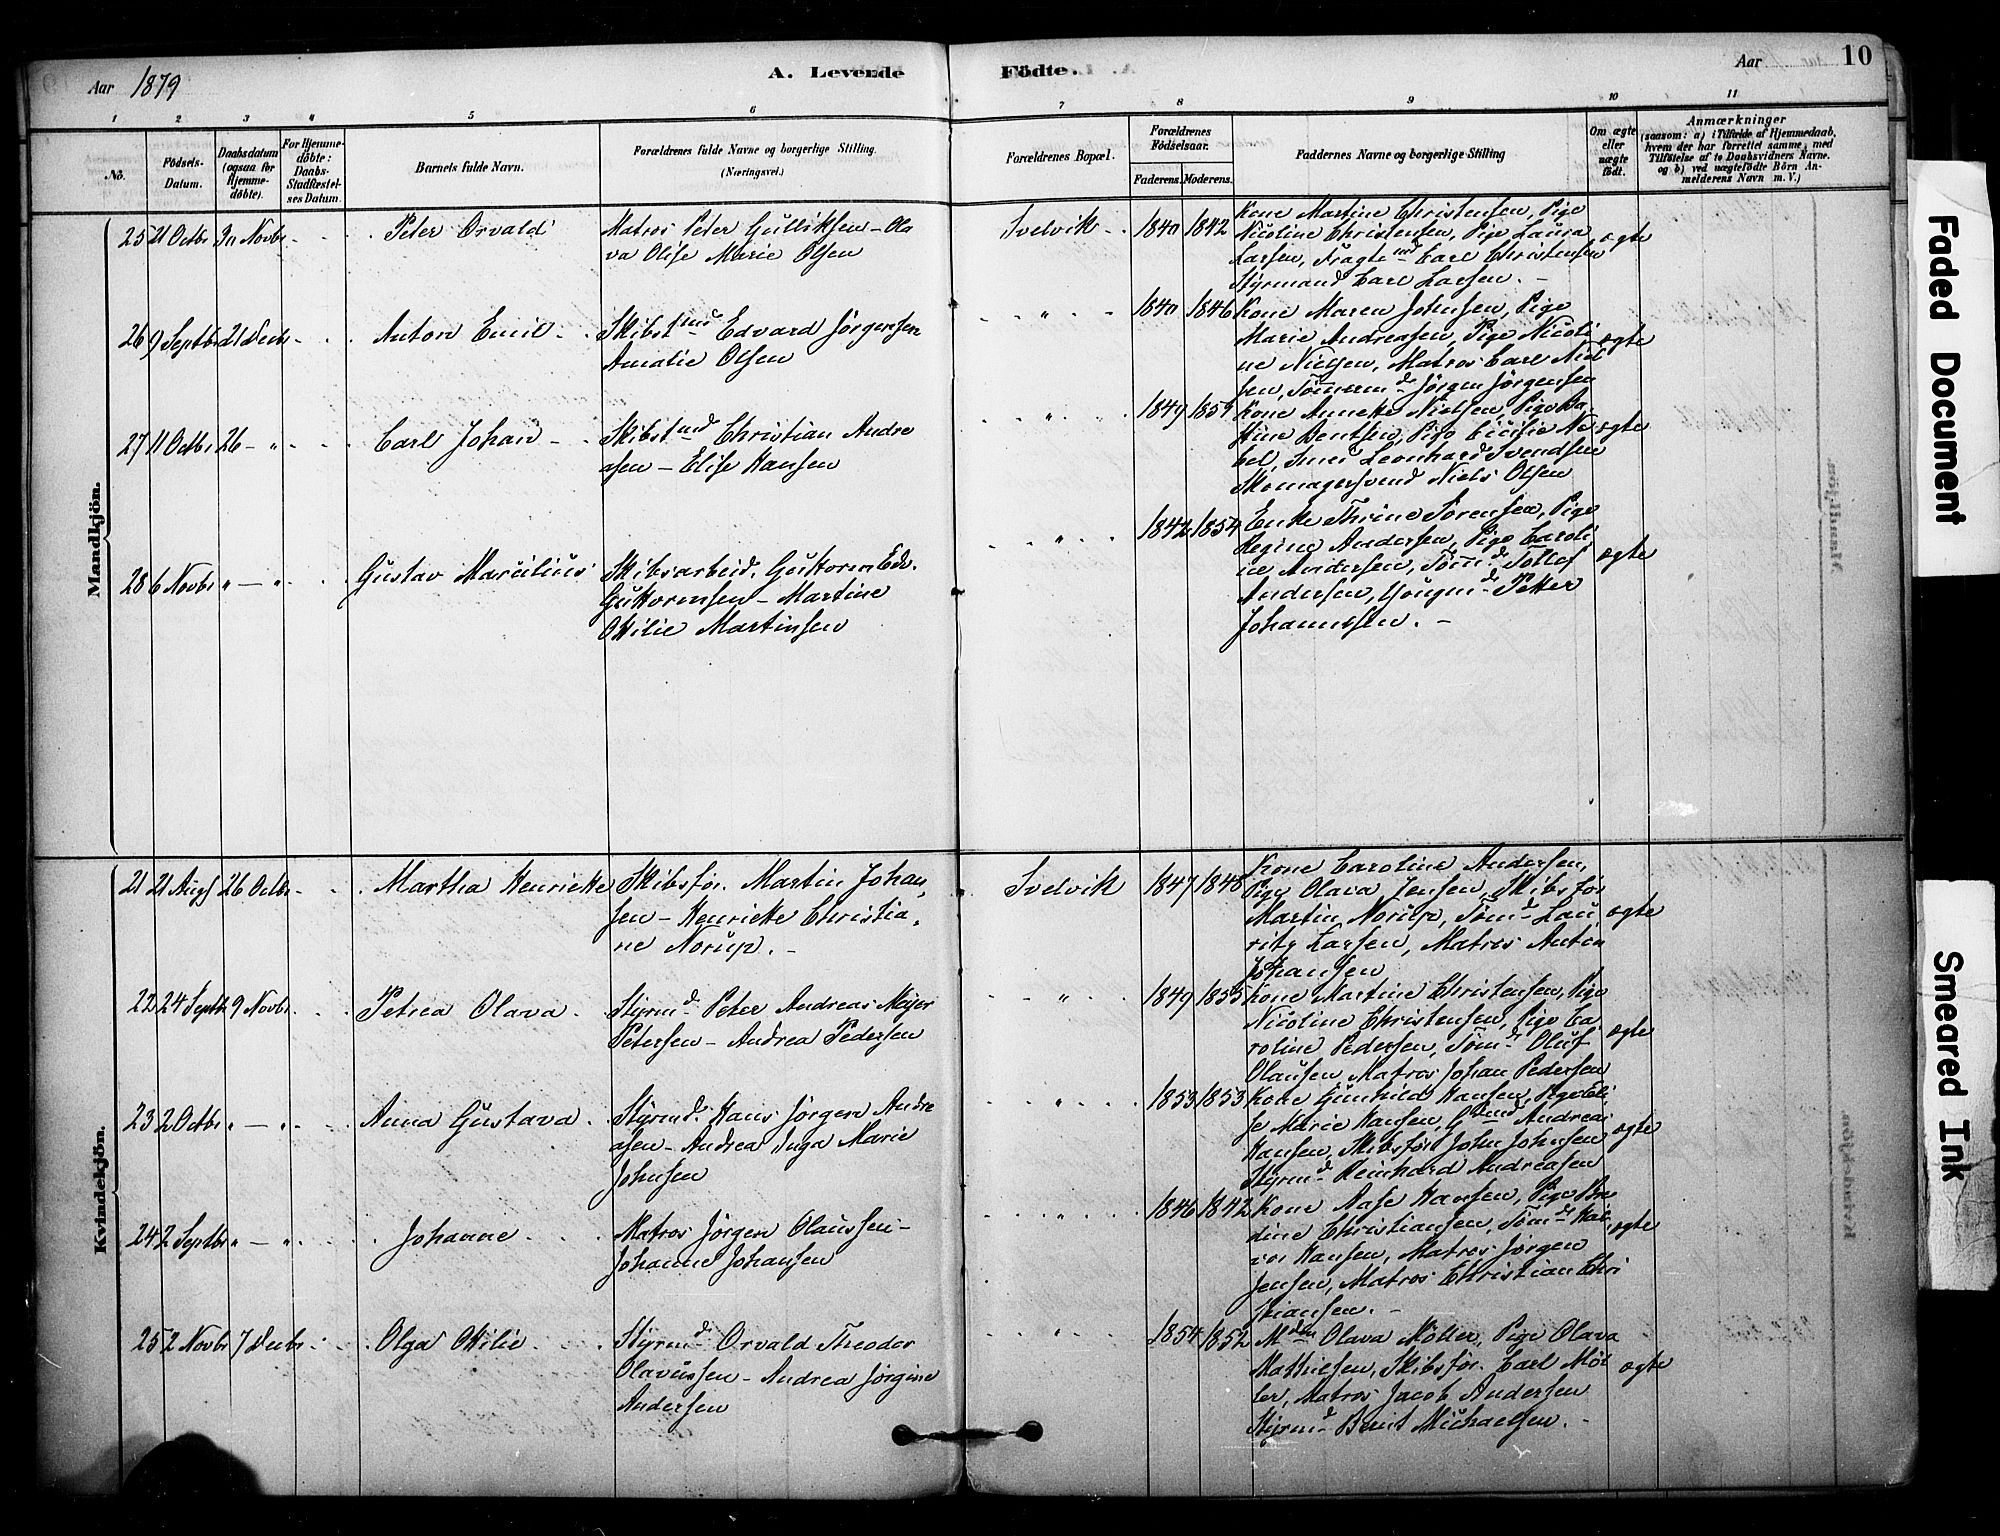 Aar 1879
A. Levende
Födte.
Aar
10
1 2 3 4 5 6 7 8 9 10 11
No.
Födsels-
Datum.
Daabsdatum
(ogsaa for
Hjemme-
döbte).
For Hjemme-
döbte:
Daabs-
Stadfæstel-
ses Datum.
Barnets fulde Navn.
Forældrenes fulde Navne og borgerlige Stilling.
(Næringsvei.)
Forældrenes Bopæl.
Forældrenes
Födselsaar.
Faderens. Moderens.
Faddernes Navne og borgerlige Stilling
Om ægte
eller
uægte
födt.
Anmærkninger
(saasom: a) i Tilfælde af Hjemmedaab,
hvem der har forrettet samme, med
Tilföielse af to Daabsvidners Navne.
og b) ved uægtefödte Börn An-
melderens Navn m. V.)
Mandkjön.
25 21 Octbr 30 Novbr - Peter Orvald
Matros Peter Gulliksen - Ola
va Olise Marie Olsen
Svelvik - 1840 1842
Kone Martine Christensen, Pige
Nicoline Christensen, Pige Laura
Larsen, Fragtemd Carl Christensen
Styrmand Carl Larsen. -
ægte
26 9 Septbr 21 Decbr - Anton Emil -
Skibstmd Edvard Jørgensen
Amalie Olsen
- " - 1840 1846
Kone Maren Johnsen, Pige
Marie Andreasen, Pige Nicoli
ne Nielsen, Matros Carl Niel
sen, Tømmermd Jørgen Jørgensen
ægte
27 11 Octbr 26 - " - Carl Johan -
Skibstmd Christian Andre
asen - Elise Hansen
- " - 1849 1859
Kone Annette Nielsen, Pige
Bentsen, Pige Cicilie Ne
bel, Smed Leonhard Svendsen
Skomagersvend Niels Olsen
ægte
28 6 Novbr " - " - Gustav Marcilius
Skibsarbeid. Guttorm Edv.
Guttormsen - Martine
Otilie Martinsen
- " - 1842 1854
Enke Thrine Sørensen, Pige
Regine Andersen, Pige Caroli
ne Andersen, Tømd Tollef
Andersen, Petter
Johannssen. -
ægte
Kvindekjön.
21 21 Augs 26 Octbr - Martha Henriette
Skibsfør. Martin Johan,
sen - Henriette Christia,
ne Norup. -
Svelvik 1847 1848
Kone Caroline Andersen,
Pige Olava Jensen, Skibsfør
Martin Norup, Tømd Lau
ritz Larsen, Matros Anton
Johansen
ægte
22 24 Septb 9 Novbr - Petrea Olava -
Styrmd Peter Andreas Meyer
Petersen - Andrea Pedersen
- " - 1849 1855
Kone Martine Christensen, Pige
Nicoline Christensen, Pige Ca
roline Pedersen, Tømd Oluf
Olausen Matros Johan Pedersen
ægte
23 2 Octbr " - " - Anna Gustava -
Styrmd. Hans Jørgen Andre
asen - Andrea Inga Marie
Johnsen
- " - 1853 1853
Kone Gunhild Hansen, Pige Eli
se Marie Hansen, Andreas
Hansen, Skibsfør John Johnsen
Styrmd Reinhard Andreasen
ægte
24 2 Septbr " - " - Johanne -
Matros Jørgen Olaussen -
Johanne Johansen
- " - 1846 1842
Kone Aase Hansen, Pige Bre
dine Christiansen, Tømd Hal
vor Hansen, Matros Jørgen
Jensen, Matros Christian Chri
stiansen. -
ægte
25 2 Novbr 7 Decbr - Olga Otilie -
Styrmd Orvald Theodor
Olavussen - Andrea Jørgine
Andersen
- " - 1854 1852
Mdm Olava Møller, Pige Olava
Mathiesen, Skibsfør. Carl Møl
ler, Matros Jacob Andersen
Styrmd Bernt Michaelsen. -
ægte
Faded Document
Smeared Ink